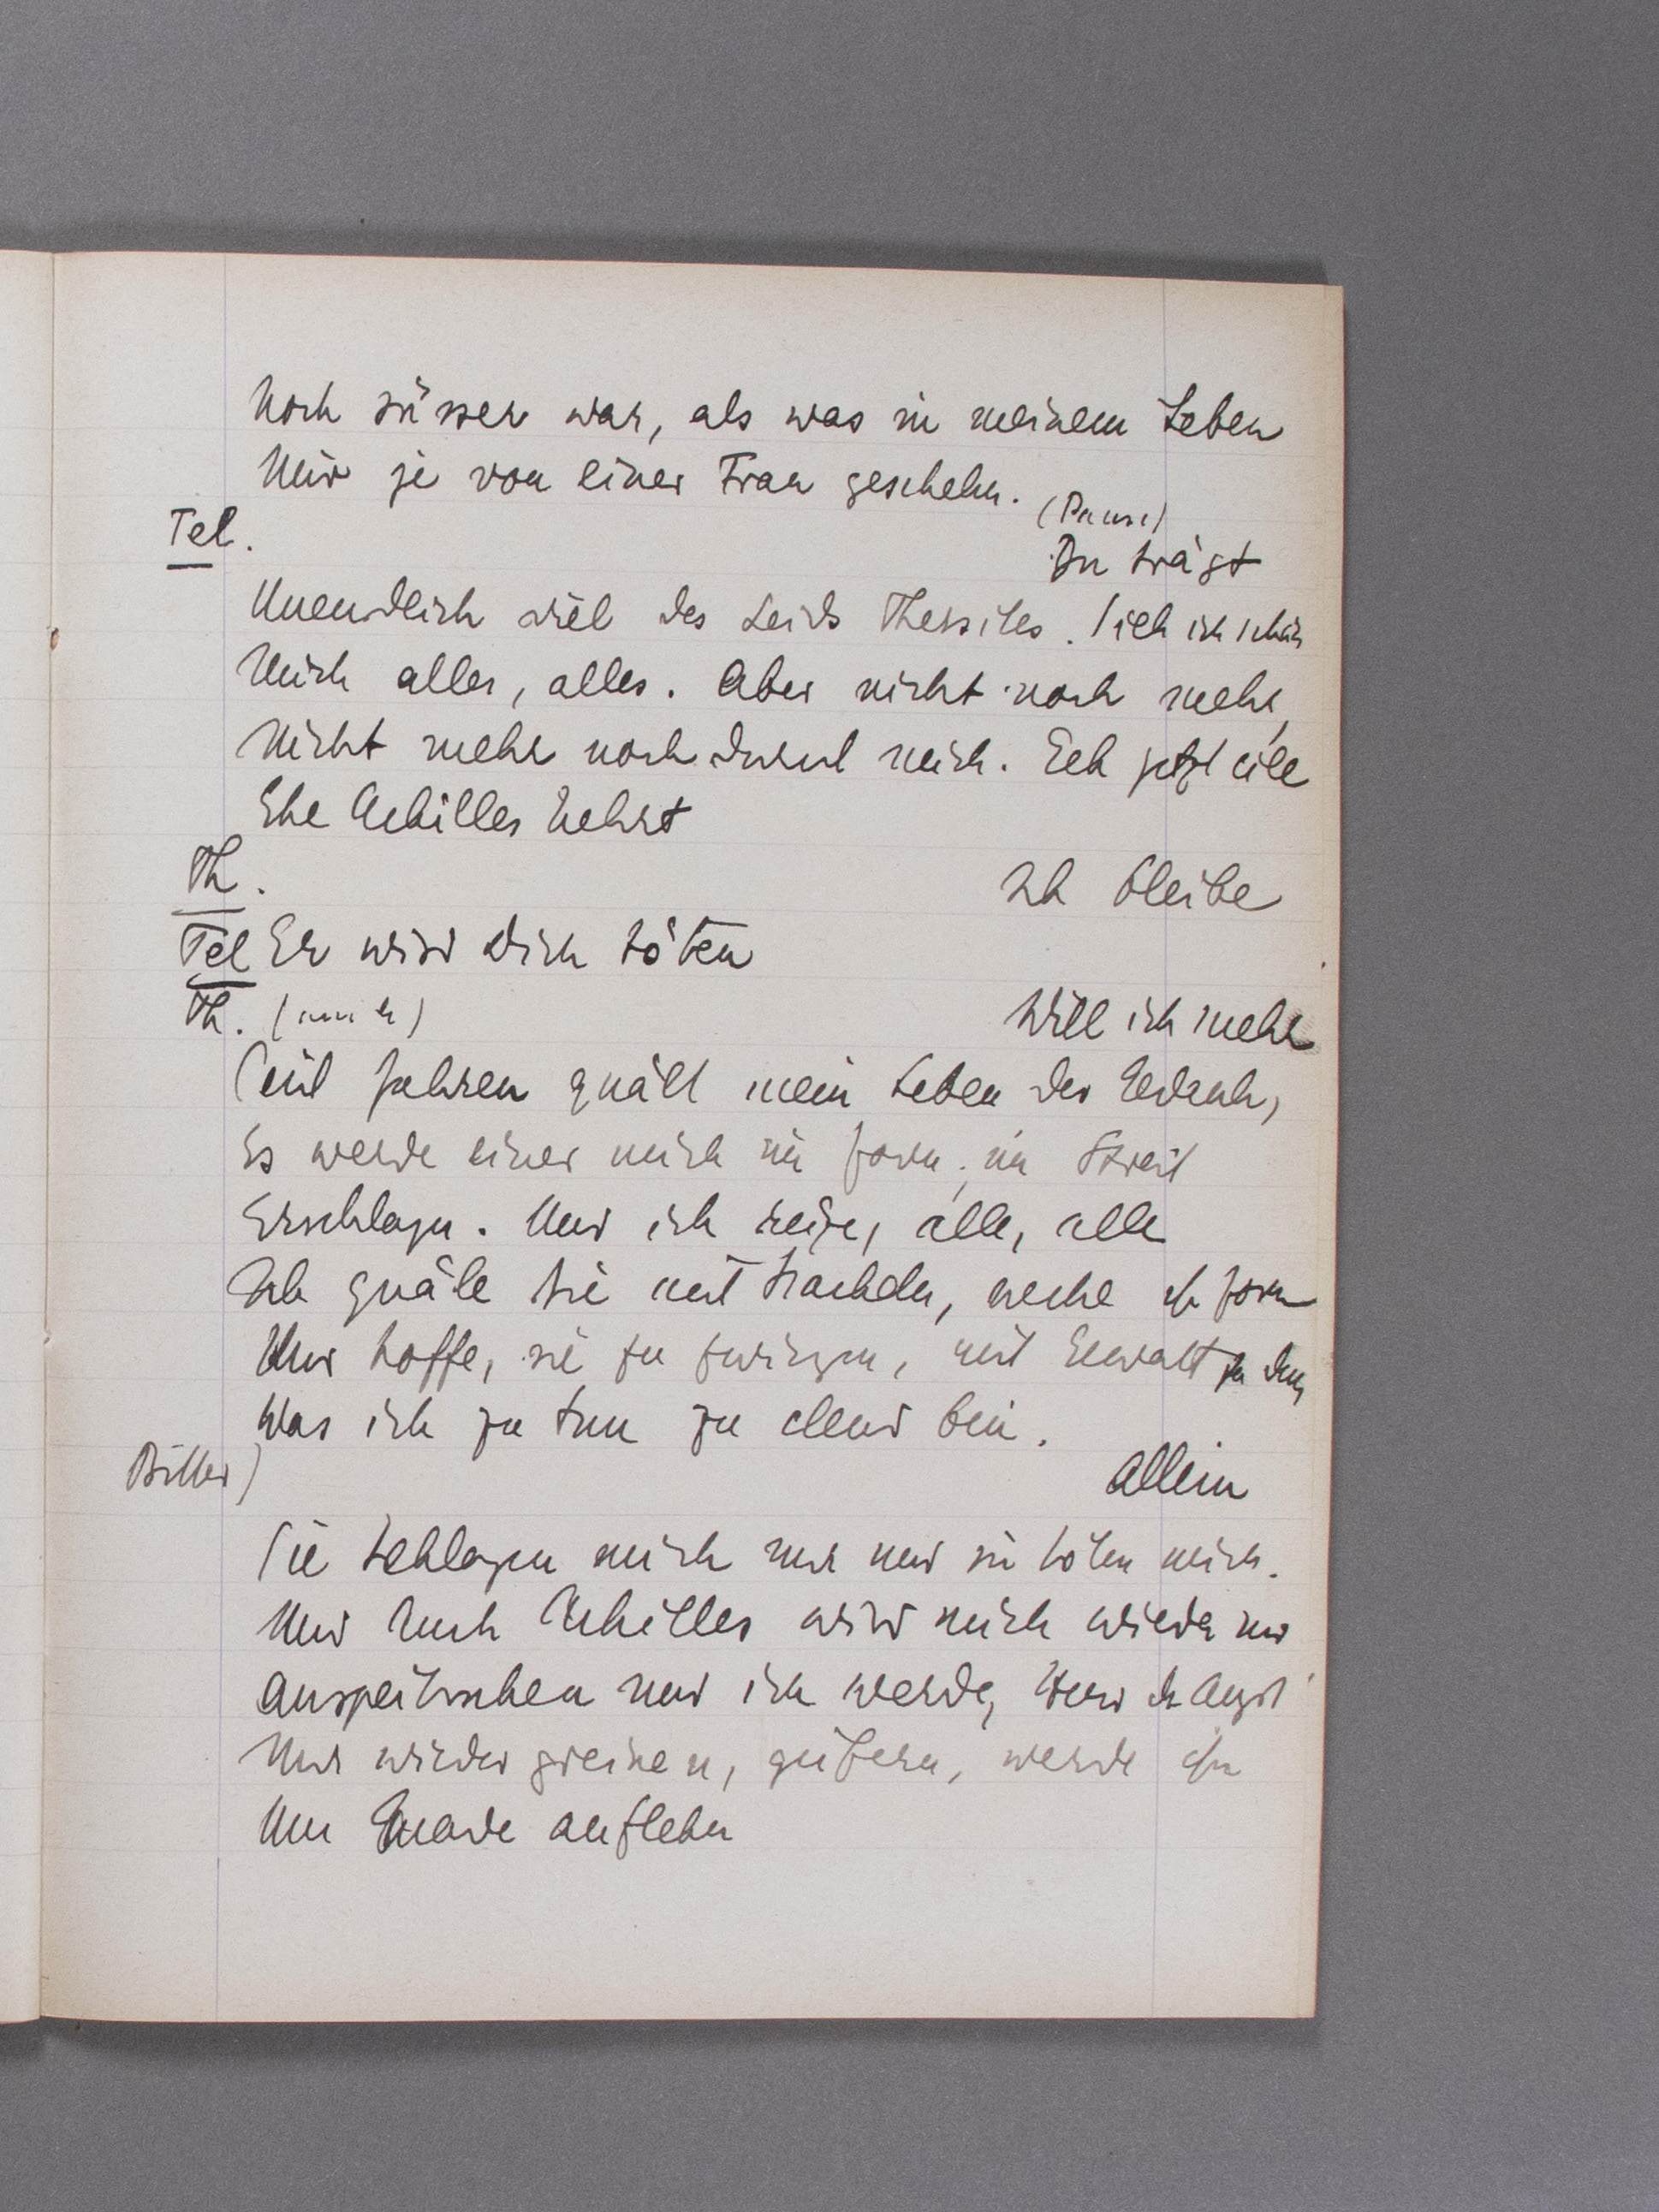 Noch süsser war, als was in meinem Leben
Mir je von einer Frau geschehn.
(Pause)
Tel.
Du trägst
Unendlich viel des Leids Thersites. Sieh ich schäm
Mich alles, alles. Aber nicht noch mehr,
Nicht mehr noch durch mich. Geh jetzt eile
Ehe Achilles kehrt
Th.
Ich bleibe
Tel Er wird dich töten
Th.
Will ich mehr
Seit Jahren quält mein Leben der Gedank,
Es werde einer mich im Zorn, im Streit
Erschlagen. Und ich reize, alle, alle
Ich quäle sie mit Stacheln, wecke ihr Zorn
Und hoffe, sie zu zwingen, mit Gewalt zu dem
Was ich zu tun zu elend bin.
Bitter)
Allein
Sie schlagen mich nur und sie töten mich.
Und auch Achilles wird mich wieder nur
Auspeitschen und ich werde, der Angst
Nur wieder greinen, geifern, werde ihn
Um Gnade anflehn